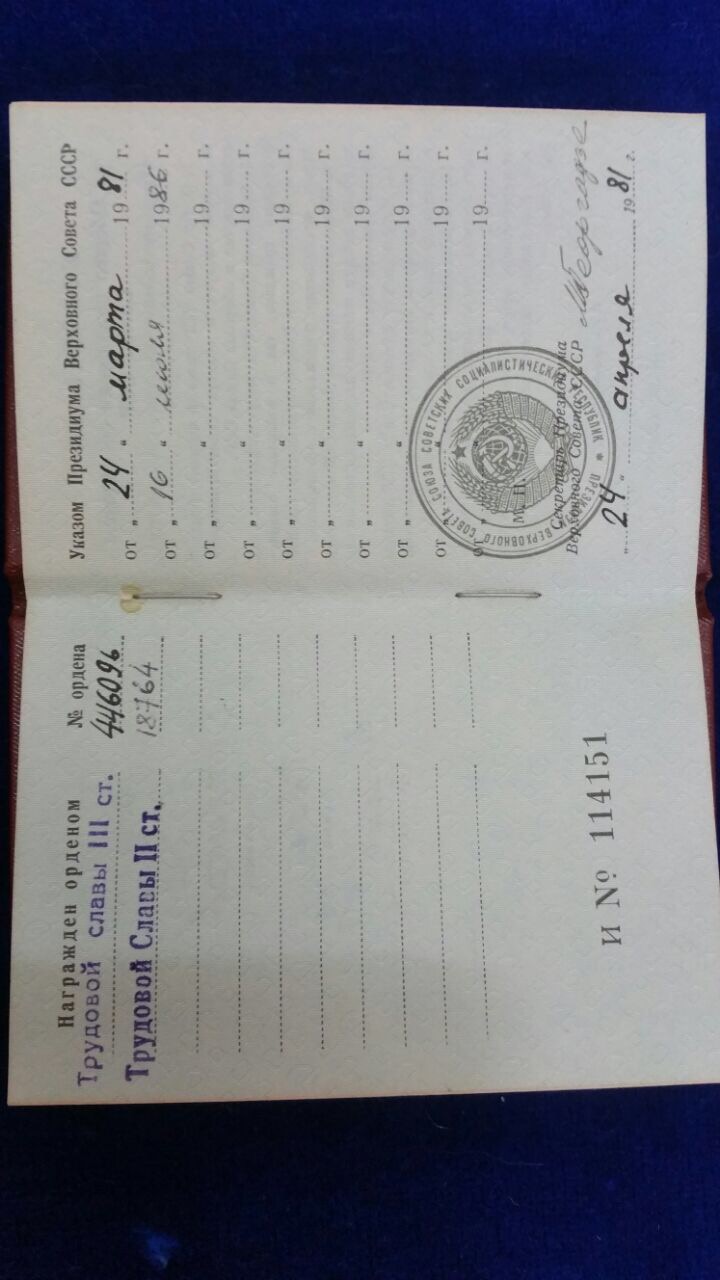 Награжден орденом
Трудовой славы III ст.
Трудовой Славы II ст.
№ ордена
446096
18764
И № 114151
Указом Президиума Верховного Совета СССР
от „ 24 “ марта 19 81 г.
от „ 16 “ июля 19 86 г.
от „ “ 19 г.
от „ “ 19 г.
от „ “ 19 г.
от „ “ 19 г.
от „ “ 19 г.
от „ “ 19 г.
от „ “ 19 г.
от „ “ 19 г.
М. П.
Секретарь Президиума
Верховного Совета СССР МГеоргадзе
„ 24 “ апреля 19 81 г.
ПРЕЗИДИУМ ВЕРХОВНОГО СОВЕТА СОЮЗА СОВЕТСКИХ СОЦИАЛИСТИЧЕСКИХ РЕСПУБЛИК